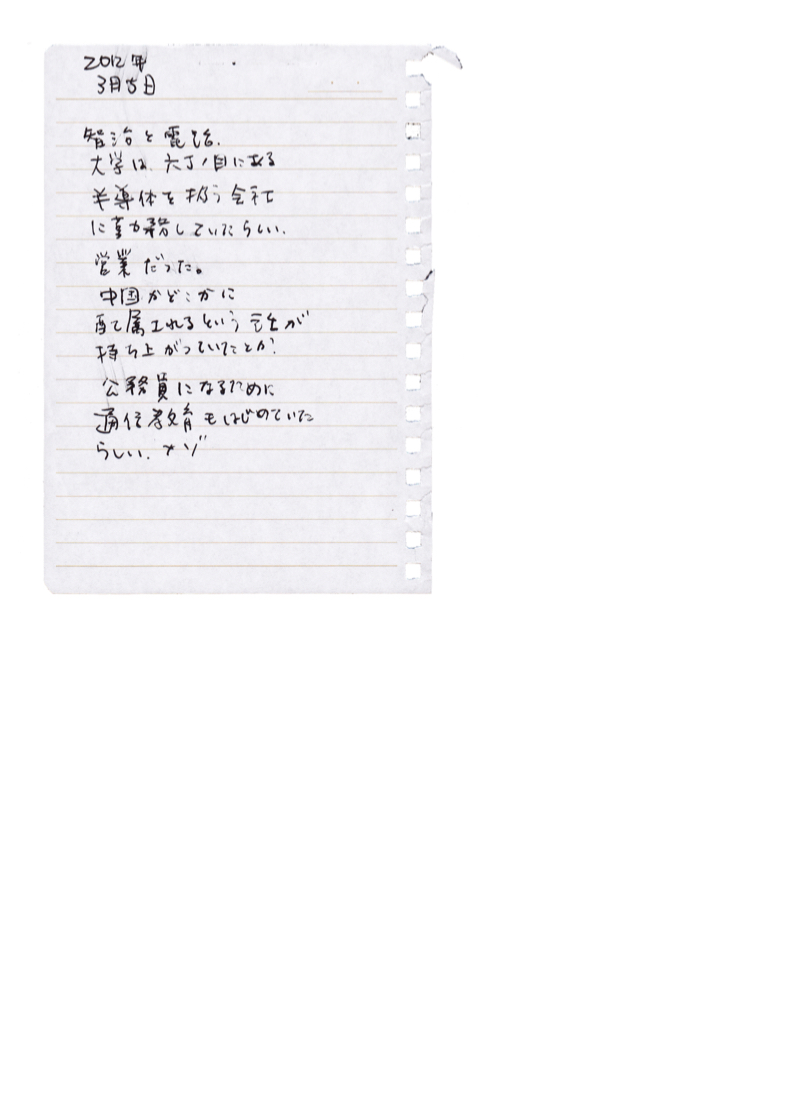 2012年
3月5日
智治と電話.
大学は、六丁ノ目にある
半導体を扱う会社
に勤務していたらしい.
営業だった。
中国かどこかに
配属されるという話が
持ち上がっていたとか.
公務員になるために
通信教育もはじめていた
らしい. ナゾ